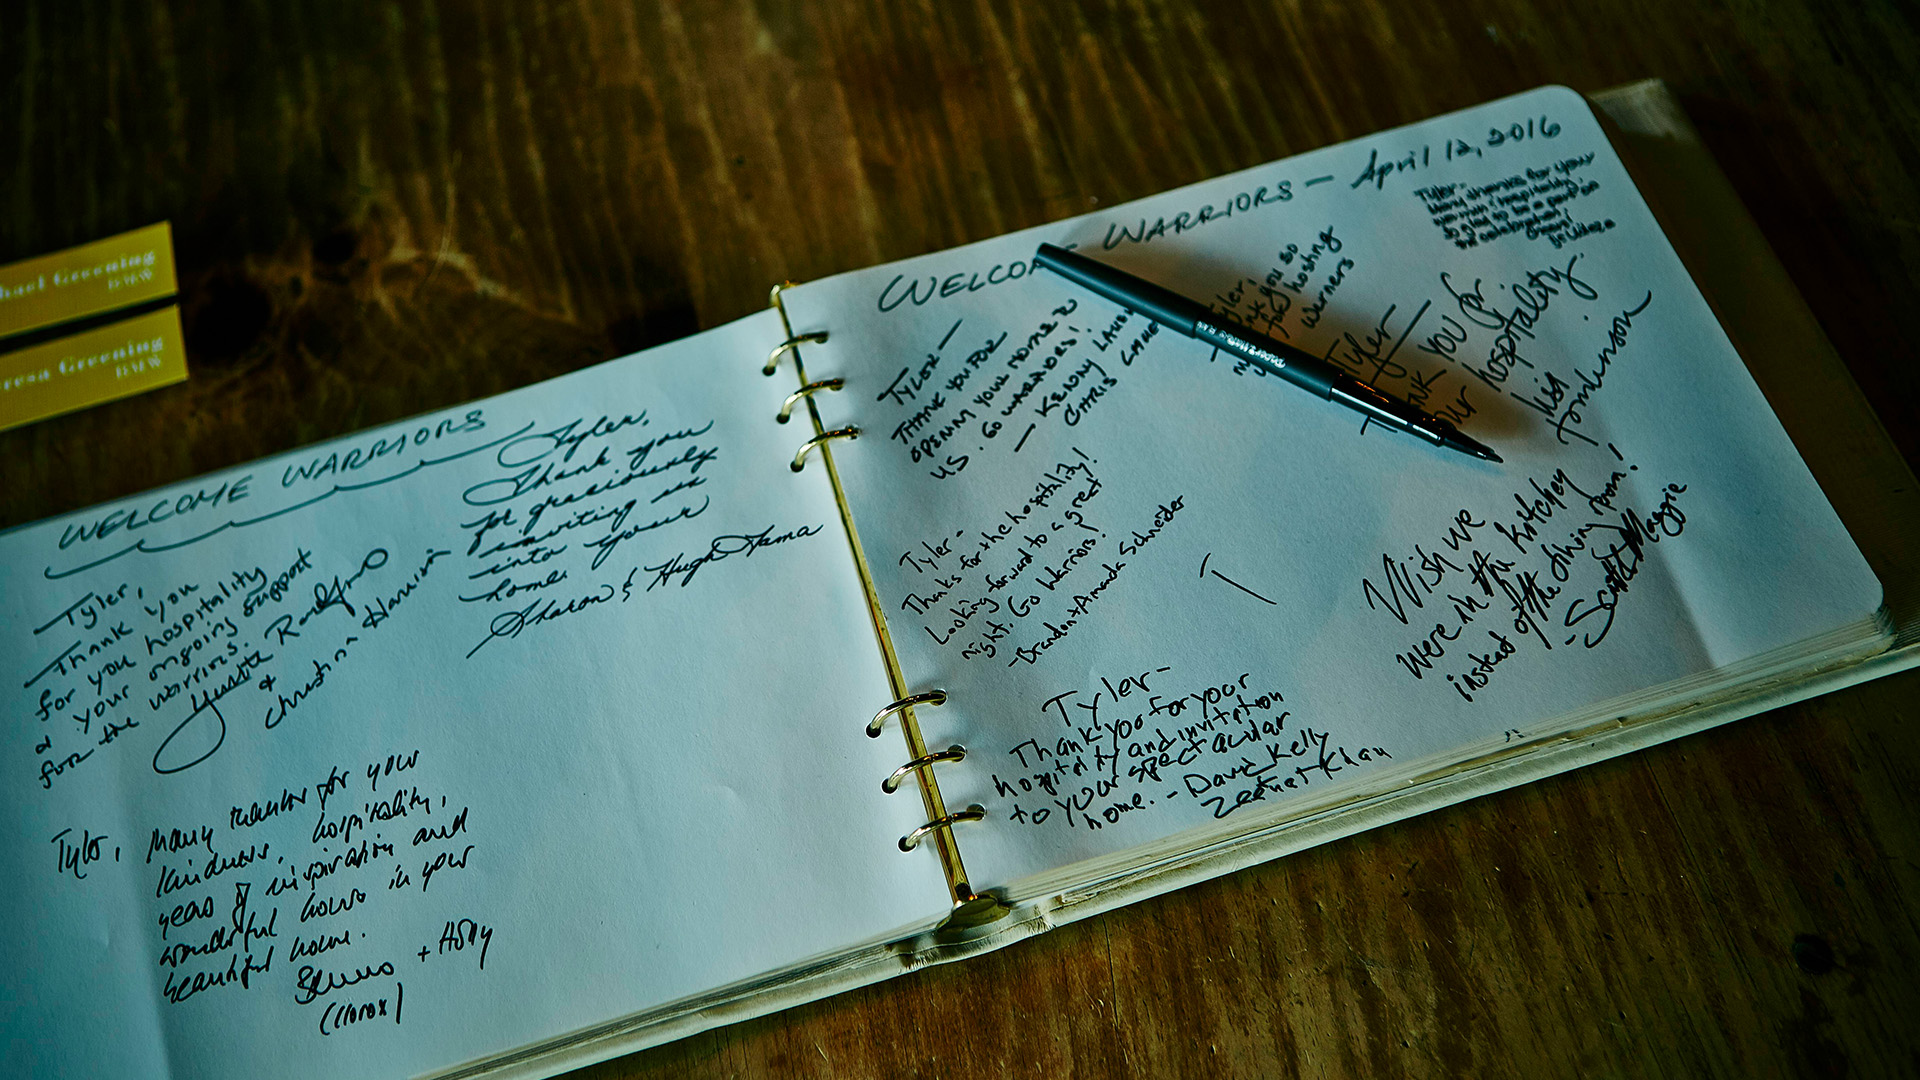 Greening
BMW
Greening
BMW
WELCOME WARRIORS
Tyler,
Thank you
for you hospitality
& your ongoing support
for the warriors.
&
Christian Harrison
Tyler,
Thank you
for graciously
inviting us
into your
home.
Sharon & Hugh
Tyler, Many thanks for your
kindness, hospitality,
years of inspiration and
wonderful hours in your
beautiful home.
+ Holly
(Clorox)
WARRIORS - April 12, 2016
TYLER -
THANK YOU FOR
OPENING YOUR HOME TO
US. GO WARRIORS!
- KENNY
CHRIS
Tyler,
you so
for hosting
Tyler -
many thanks for your
Tyler
YOU for
hospitality.
Lisa
Tomlinson
Tyler -
Thanks for the hospitality!
Looking forward to a great
night. Go Warriors!
- Brandon + Amanda Schneider
Wish we
were in the kitchen
instead of the dining room!
- Scott & Maggie
Tyler -
Thank you for your
hospitality and invitation
to your spectacular
home. - David Kelly
Zeenat Khan